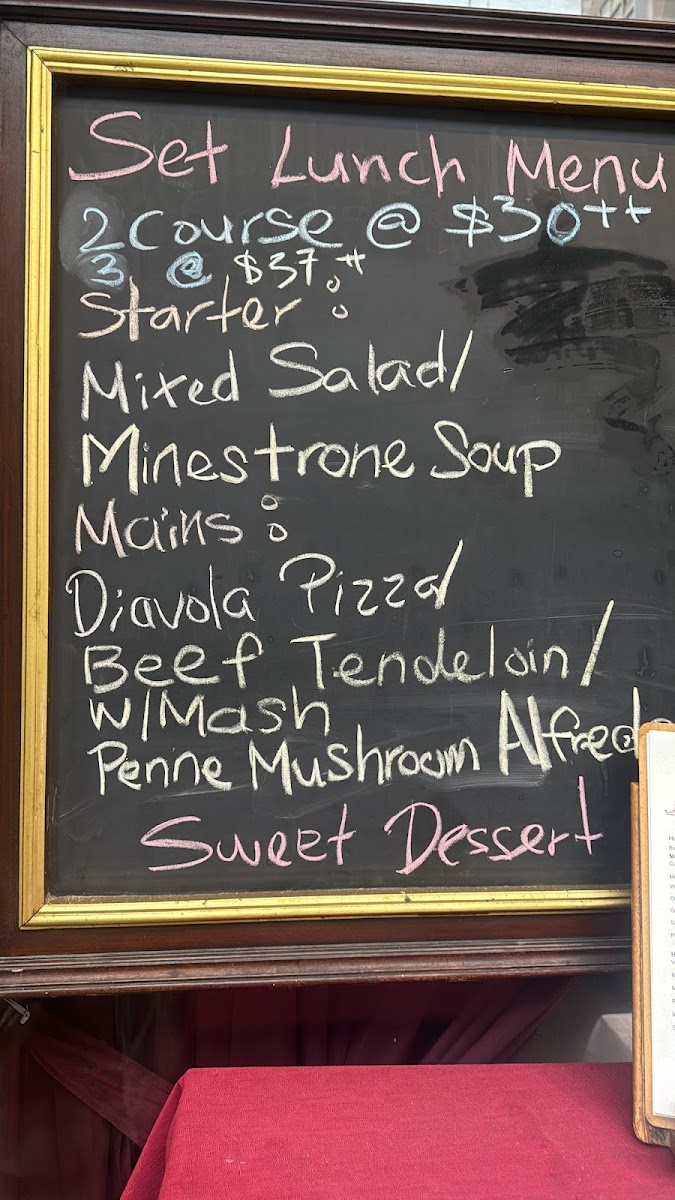 Set Lunch Menu
2 Course @ $30++
3 @ $37++
Starter:
Mixed Salad/
Minestrone Soup
Mains:
Diavola Pizza/
Beef Tendeloin/
W/Mash
Penne Mushroom Alfredo
Sweet Dessert